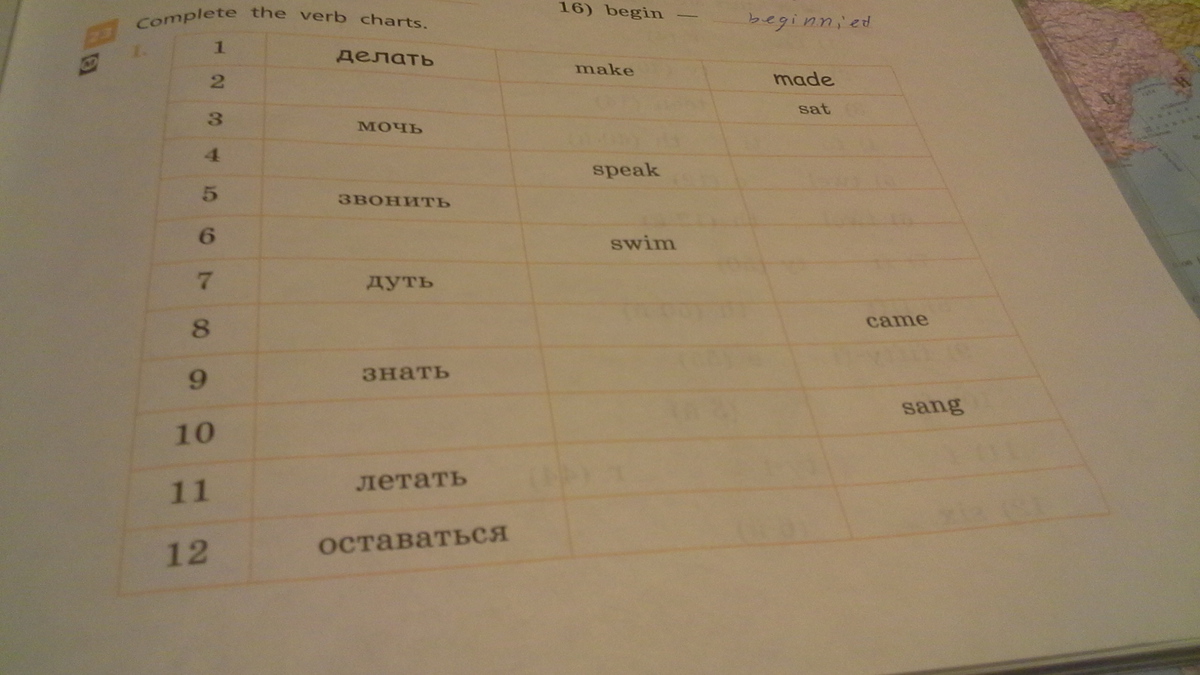 16) begin — beginnied
23 Complete the verb charts.
1.
1 делать make made
2 sat
3 мочь
4 speak
5 звонить
6 swim
7 дуть
8 came
9 знать
10 sang
11 летать
12 оставаться